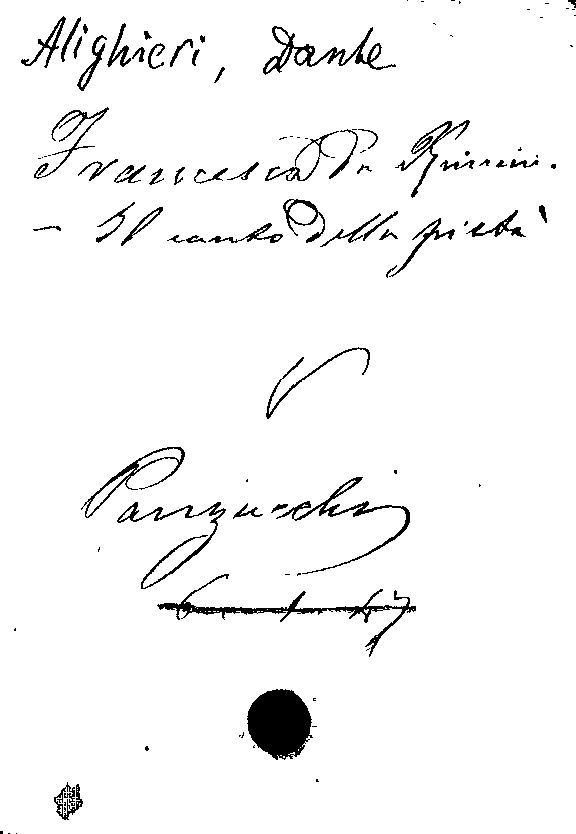 Alighieri, Dante
Francesca da Rimini.
— Il canto della pietà
V
Panzacchi
6. 1. 47